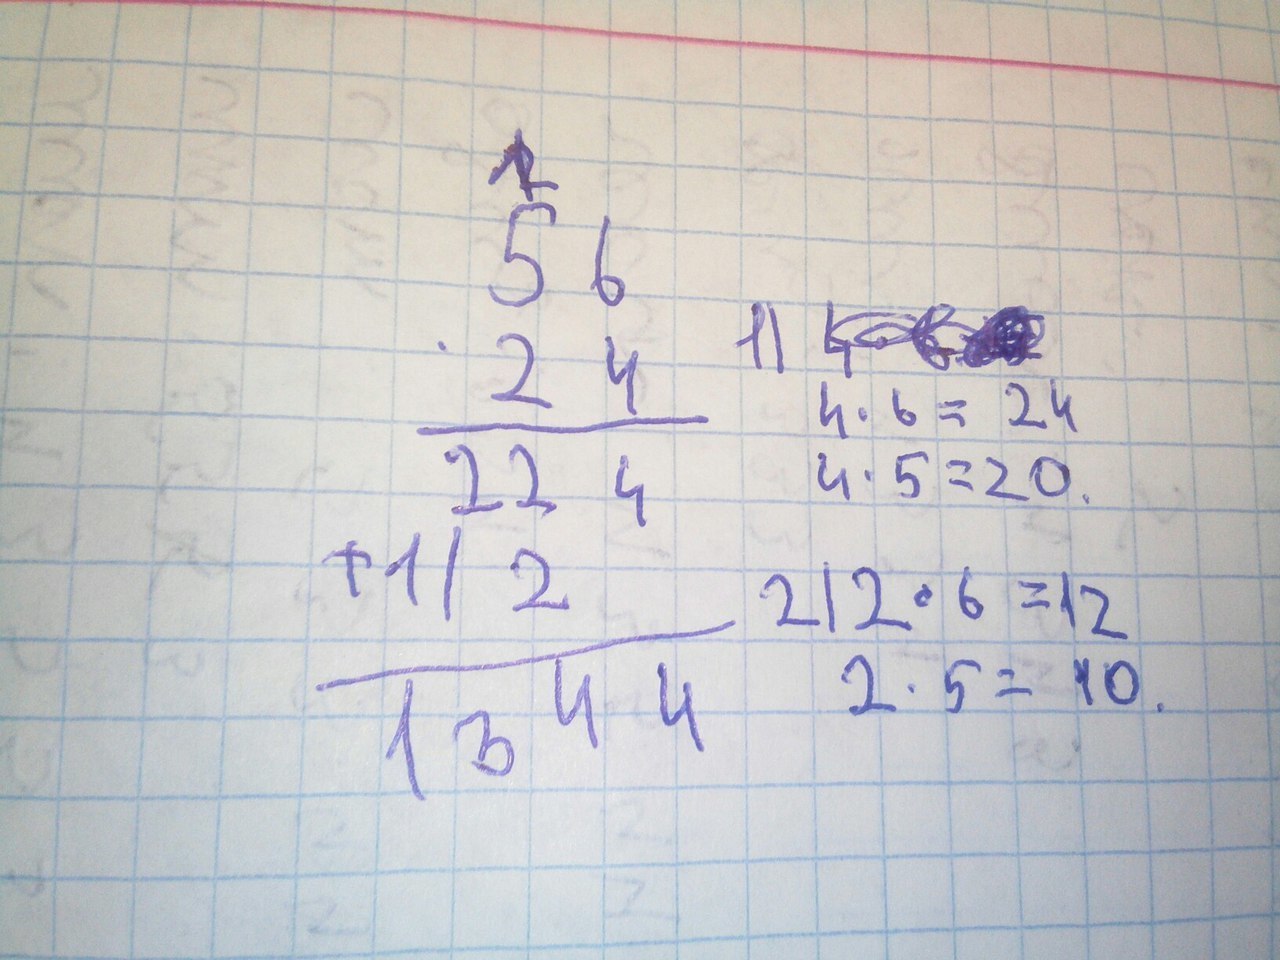 5 6
· 2 4
2 2 4
+ 1 1 2
1 3 4 4
1)
4 · 6 = 24
4 · 5 = 20.
2) 2 · 6 = 12
2 · 5 = 10.